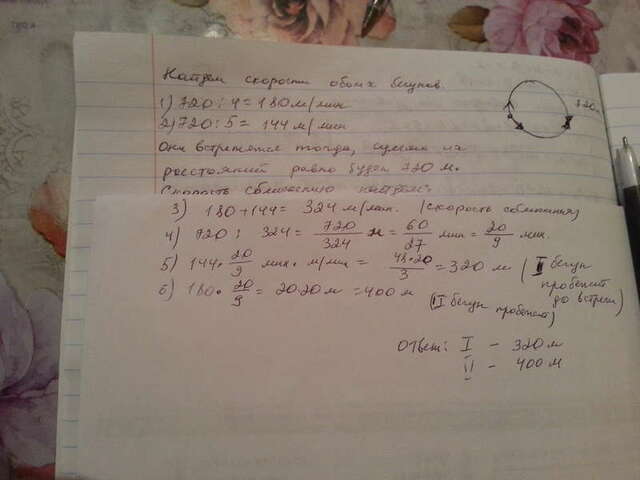 Найдем скорости обоих бегунов.
1) 720 : 4 = 180 м/мин
320м
2) 720 : 5 = 144 м/мин
Они встретятся тогда, сумма их
расстояний равно будет 720 м.
Скорость сближению найдем:
3) 180 + 144 = 324 м/мин. (скорость сближения)
4) 720 : 324 = 720/324 = 60/27 мин = 20/9 мин.
5) 144 · 20/9 мин · м/мин = 48·20/3 = 320 м (I бегун пробежит до встречи)
6) 180 · 20/9 = 20·20 м = 400 м (II бегун пробежал)
Ответ: I – 320 м
II – 400 м